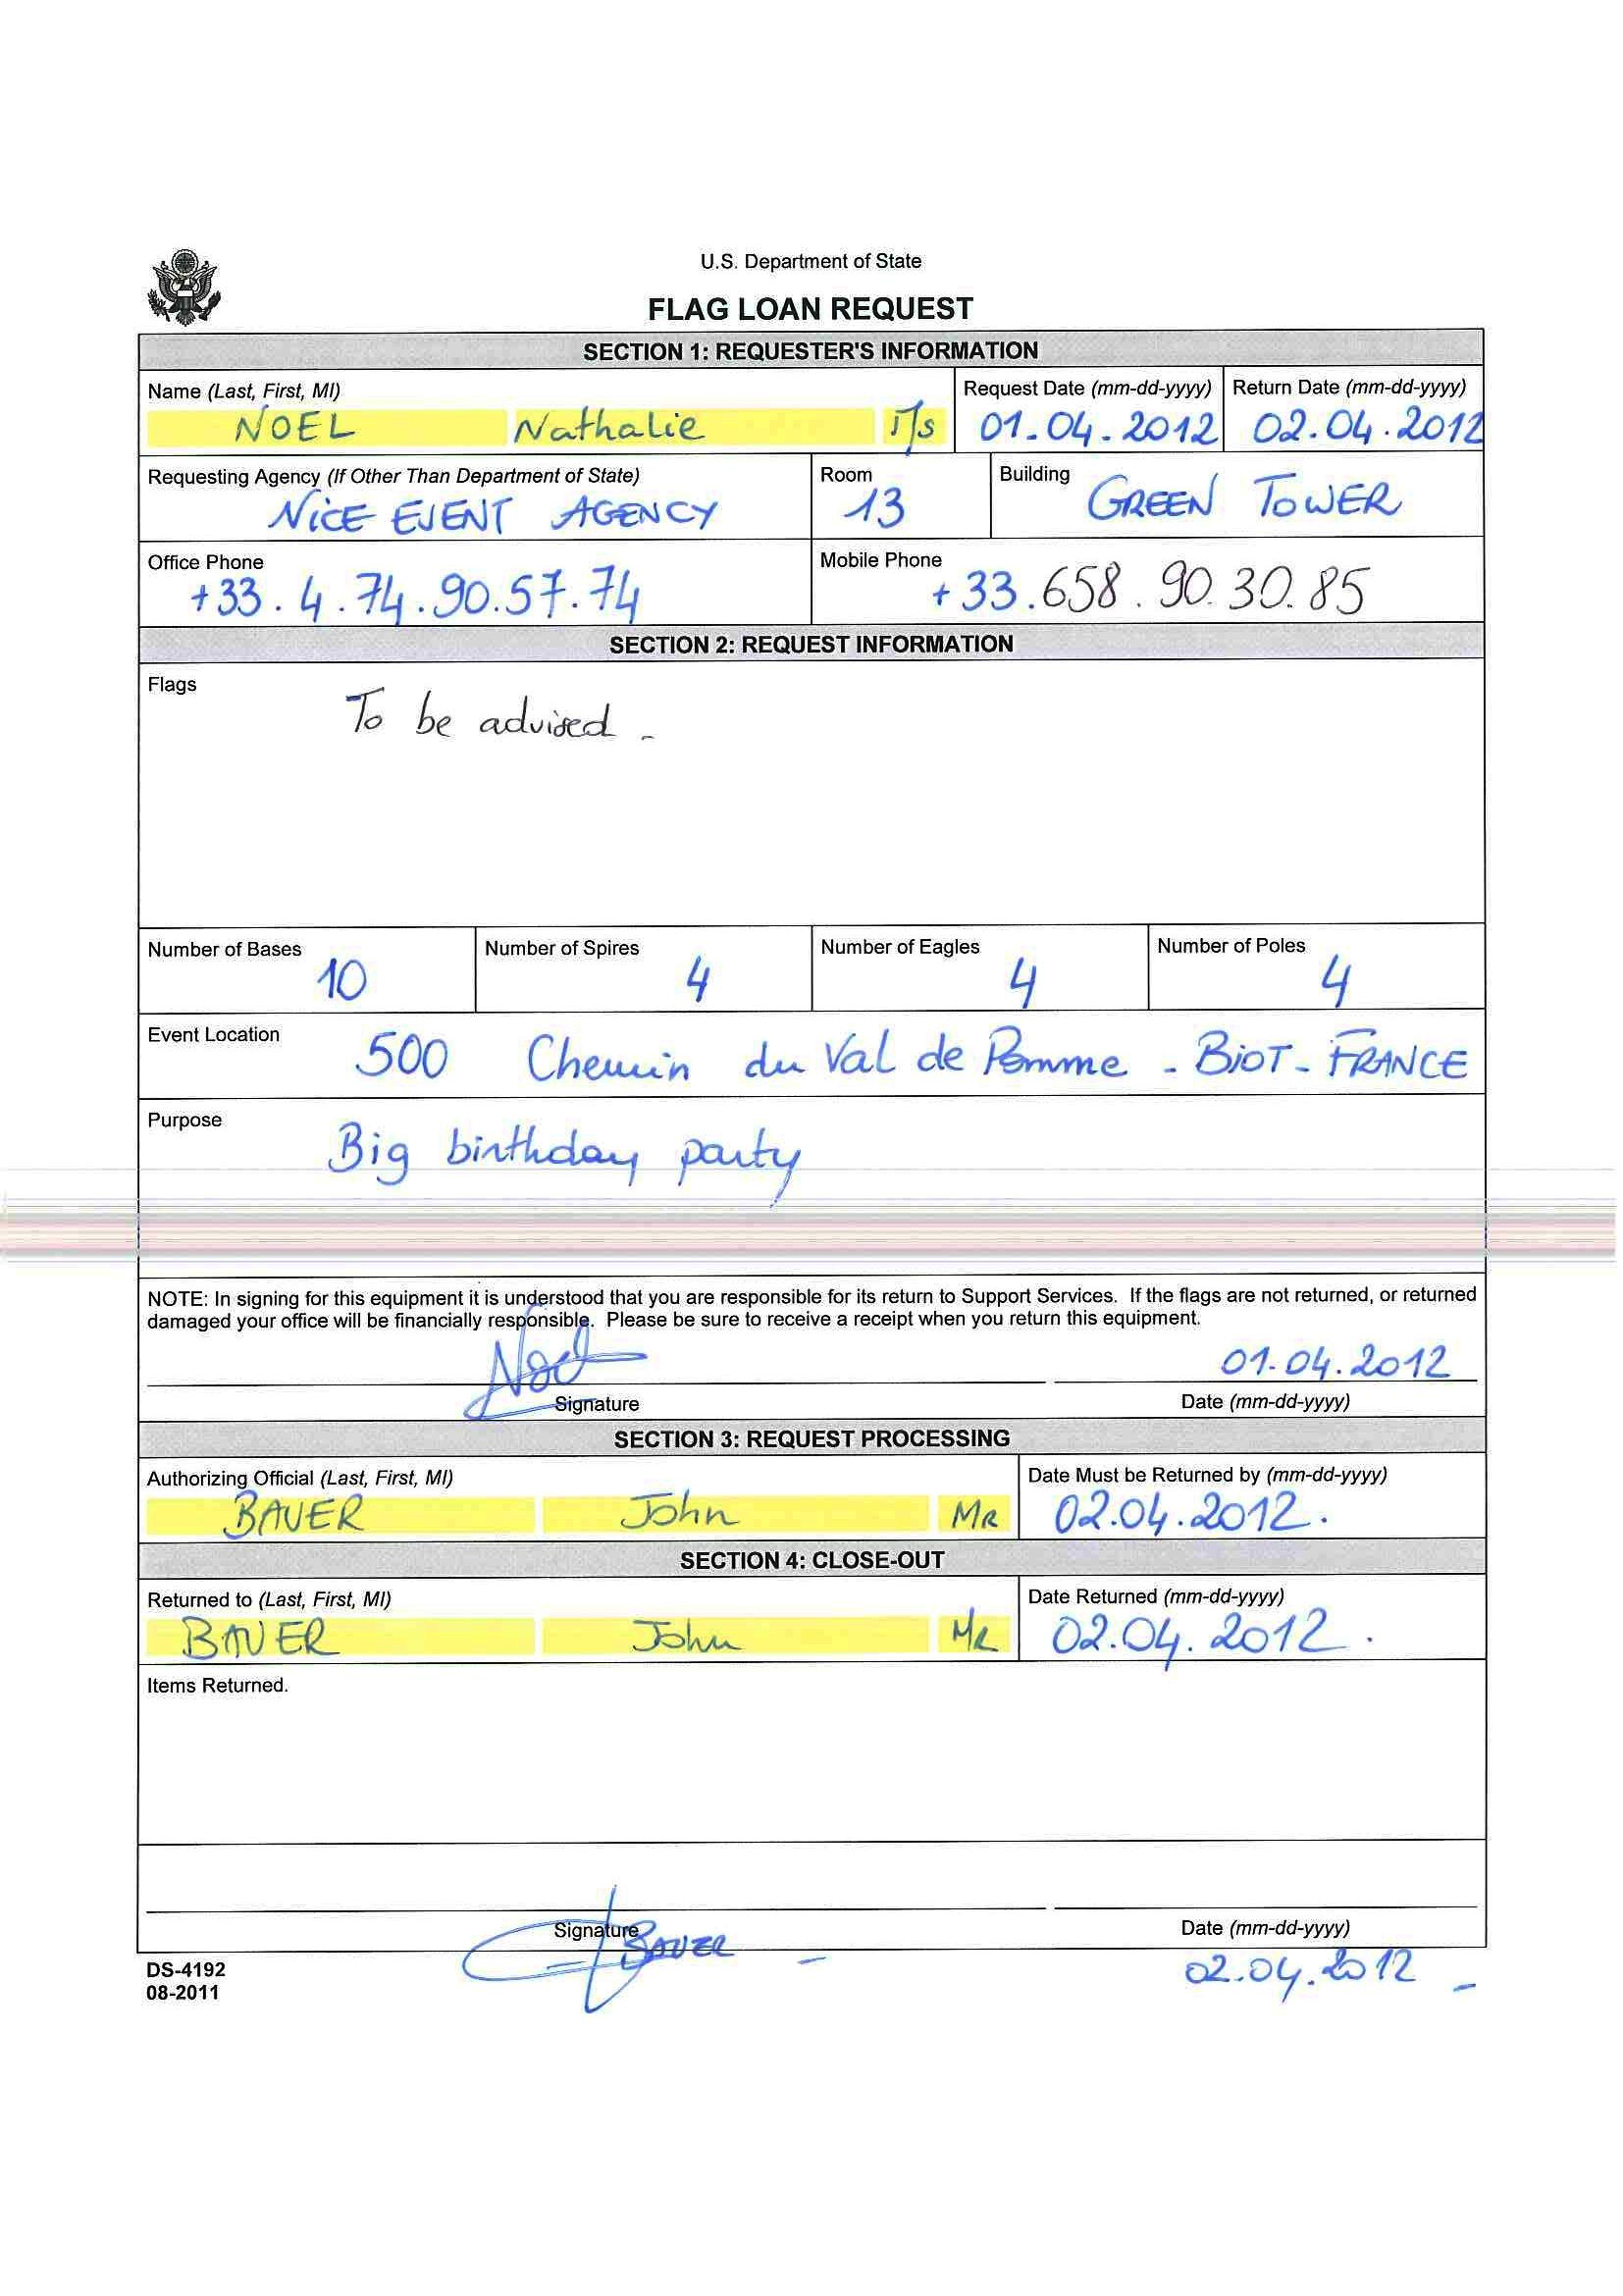 U.S. Department of State
FLAG LOAN REQUEST
SECTION 1: REQUESTER'S INFORMATION
Name (Last, First, MI)
NOEL Nathalie
Request Date (mm-dd-yyyy)
01.04.2012
Return Date (mm-dd-yyyy)
02.04.2012
Requesting Agency (If Other Than Department of State)
NiCE EVENT AGENCY
Room
13
Building
GREEN TOWER
Office Phone
+33.4.74.90.57.74
Mobile Phone
+33.658.90.30.85
SECTION 2: REQUEST INFORMATION
Flags
To be advised -
Number of Bases
10
Number of Spires
4
Number of Eagles
4
Number of Poles
4
Event Location
500 Chemin du Val de Pomme - BiOT - FRANCE
Purpose
Big birthday party
NOTE: In signing for this equipment it is understood that you are responsible for its return to Support Services. If the flags are not returned, or returned
damaged your office will be financially responsible. Please be sure to receive a receipt when you return this equipment.
Noel
01.04.2012
Signature
Date (mm-dd-yyyy)
SECTION 3: REQUEST PROCESSING
Authorizing Official (Last, First, MI)
BAUER John MR
Date Must be Returned by (mm-dd-yyyy)
02.04.2012.
SECTION 4: CLOSE-OUT
Returned to (Last, First, MI)
BAUER John MR
Date Returned (mm-dd-yyyy)
02.04.2012.
Items Returned.
Signature
BAUER -
Date (mm-dd-yyyy)
02.04.2012 -
DS-4192
08-2011